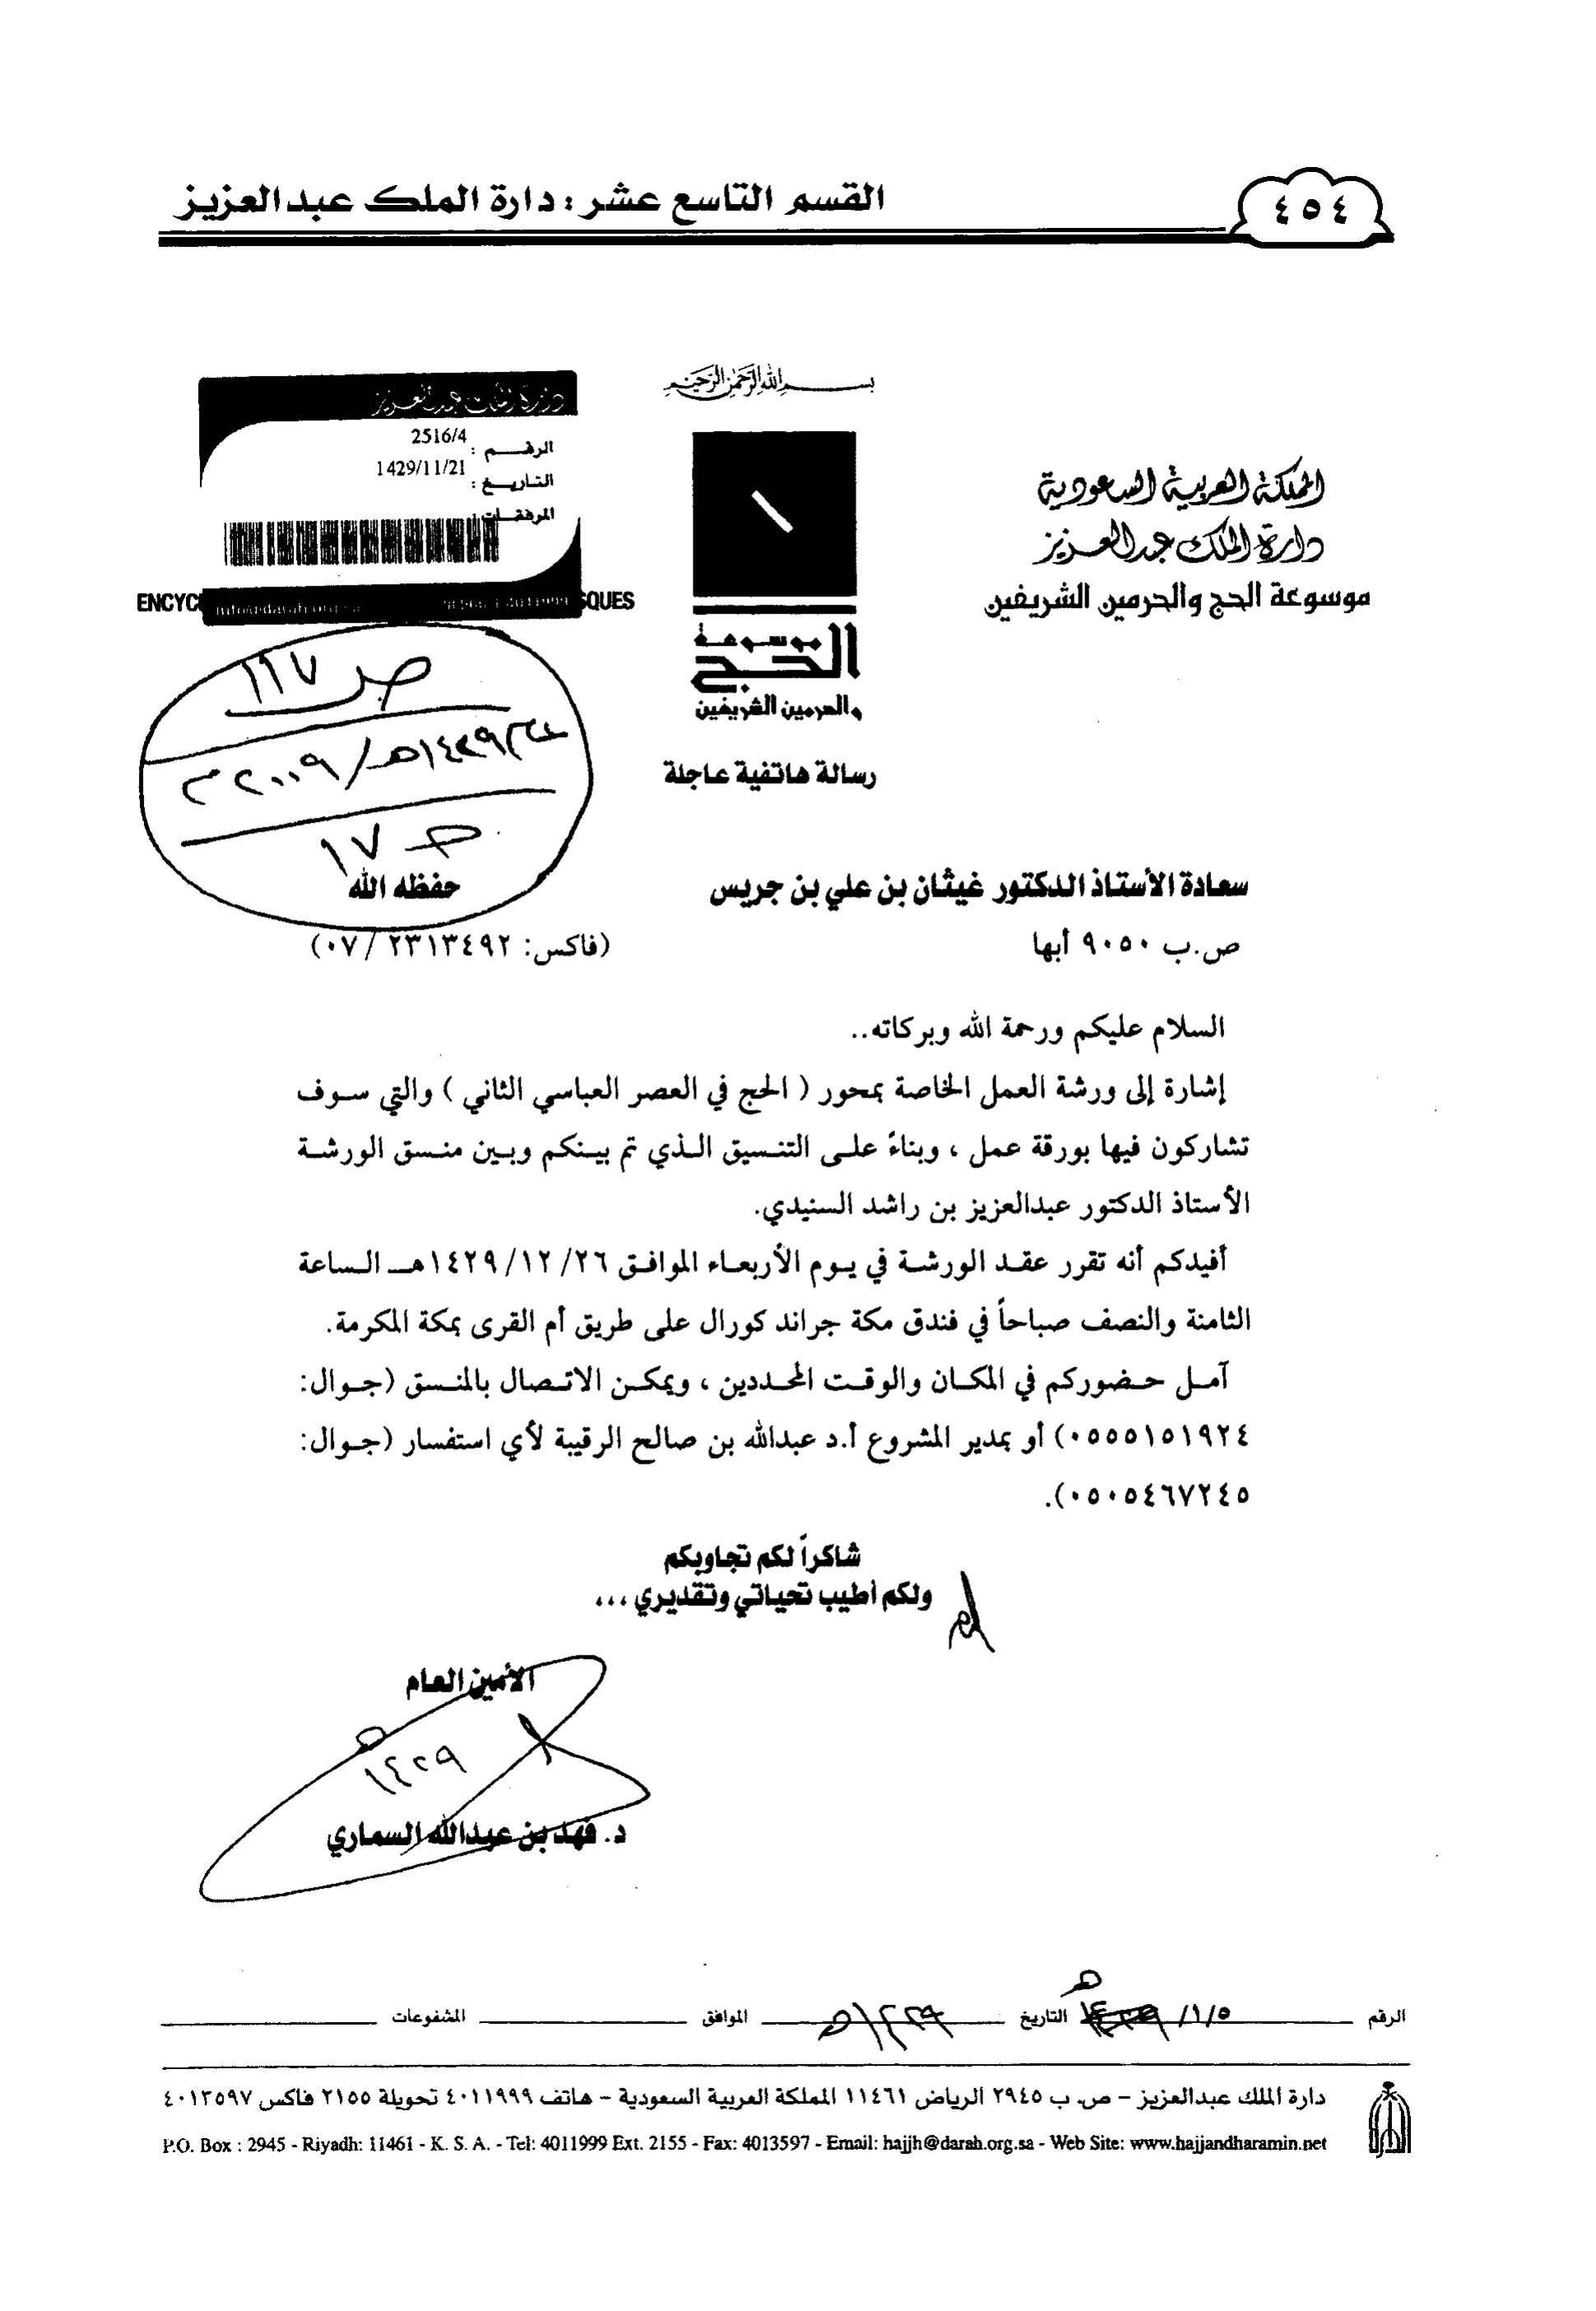 ٤٥٤
القسم التاسع عشر : دارة الملك عبدالعزيز
بسم الله الرحمن الرحيم
المملكة العربية السعودية
دارة الملك عبدالعزيز
موسوعة الحج والحرمين الشريفين
دارة الملك عبدالعزيز
الرقم : 2516/4
التاريخ : 1429/11/21
المرفقات :
info@darah.org.sa
ENCYC
SQUES
موسوعة
الحج
والحرمين الشريفين
ص ١١٧
١٤٢٩هـ/٢٠٠٩م
ج ١٧
رسالة هاتفية عاجلة
سعادة الأستاذ الدكتور غيثان بن علي بن جريس حفظه الله
ص.ب ٩٠٥٠ أبها (فاكس: ٢٣١٣٤٩٢ /٠٧)
السلام عليكم ورحمة الله وبركاته..
إشارة إلى ورشة العمل الخاصة بمحور ( الحج في العصر العباسي الثاني ) والتي سوف
تشاركون فيها بورقة عمل ، وبناءً على التنسيق الذي تم بينكم وبين منسق الورشة
الأستاذ الدكتور عبدالعزيز بن راشد السنيدي.
أفيدكم أنه تقرر عقد الورشة في يوم الأربعاء الموافق ١٤٢٩/١٢/٢٦هـ الساعة
الثامنة والنصف صباحاً في فندق مكة جراند كورال على طريق أم القرى بمكة المكرمة.
آمل حضوركم في المكان والوقت المحددين ، ويمكن الاتصال بالمنسق (جوال:
٠٥٥٥١٥١٩٢٤) أو بمدير المشروع أ.د عبدالله بن صالح الرقيبة لأي استفسار (جوال:
٠٥٠٥٤٦٧٢٤٥).
شاكراً لكم تجاوبكم
ولكم أطيب تحياتي وتقديري ...
الأمين العام
١٤٢٩هـ
د. فهد بن عبدالله السماري
الرقم ١/٥/ التاريخ ١٤٢٩هـ الموافق المشفوعات
دارة الملك عبدالعزيز – ص. ب ٢٩٤٥ الرياض ١١٤٦١ المملكة العربية السعودية – هاتف ٤٠١١٩٩٩ تحويلة ٢١٥٥ فاكس ٤٠١٣٥٩٧
P.O. Box : 2945 - Riyadh: 11461 - K. S. A. - Tel: 4011999 Ext. 2155 - Fax: 4013597 - Email: hajjh@darah.org.sa - Web Site: www.hajjandharamin.net